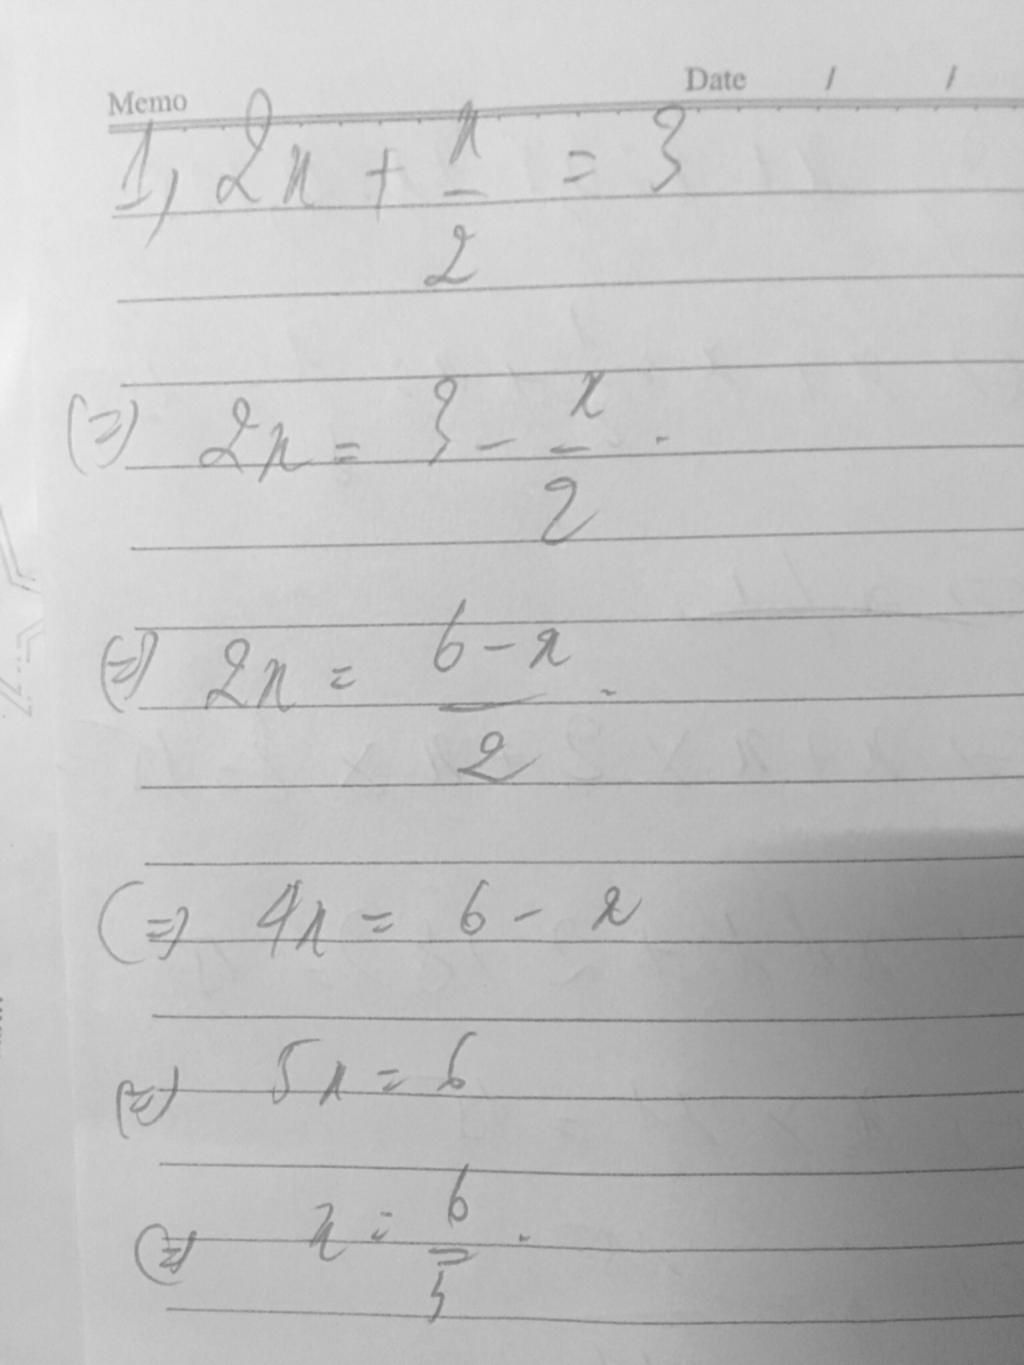 Memo Date / /
1, 2x + x/2 = 3
(=) 2x = 3 - x/2 .
(=) 2x = (6 - x)/2 .
(=) 4x = 6 - x
(=) 5x = 6
(=) x = 6/5 .